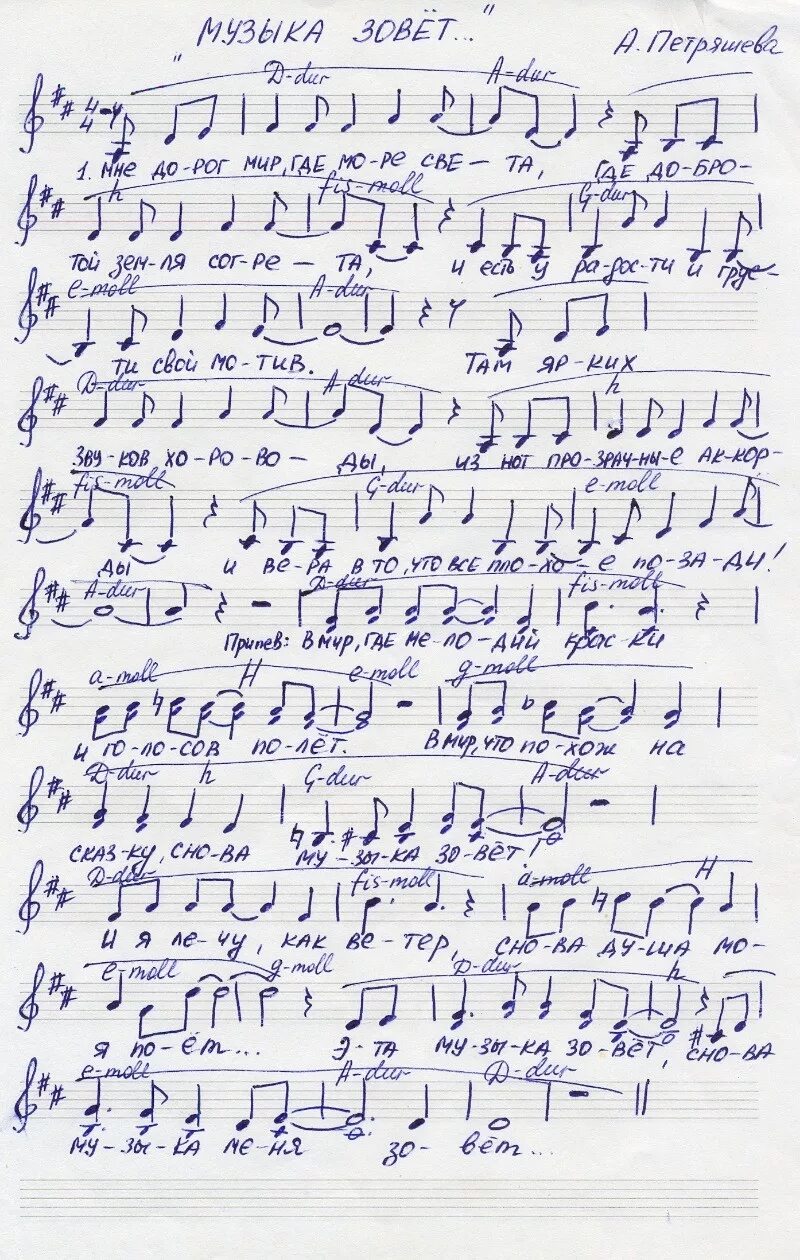 „МУЗЫКА ЗОВЁТ..."
А. Петряшева
D-dur A-dur
4 4
1. МНЕ ДО-РОГ МИР, ГДЕ МО-РЕ СВЕ-ТА, ГДЕ ДО-БРО-
h fis-moll G-dur
ТОЙ ЗЕМ-ЛЯ СОГ-РЕ-ТА, И ЕСТЬ У РА-ДОС-ТИ И ГРУС-
e-moll A-dur
ТИ СВОЙ МО-ТИВ. ТАМ ЯР-КИХ
D-dur A-dur h
ЗВУ-КОВ ХО-РО-ВО-ДЫ, ИЗ НОТ ПРО-ЗРАЧ-НЫ-Е АК-КОР-
fis-moll G-dur e-moll
ДЫ И ВЕ-РА В ТО, ЧТО ВСЕ ПЛО-ХО-Е ПО-ЗА-ДИ!
A-dur D-dur fis-moll
Припев: В МИР, ГДЕ МЕ-ЛО-ДИЙ КРАС-КИ
a-moll H e-moll g-moll
И ГО-ЛО-СОВ ПО-ЛЁТ. В МИР, ЧТО ПО-ХОЖ НА
D-dur h G-dur A-dur
СКАЗ-КУ, СНО-ВА МУ-ЗЫ-КА ЗО-ВЁТ!
D-dur fis-moll a-moll H
И Я ЛЕ-ЧУ, КАК ВЕ-ТЕР, СНО-ВА ДУ-ША МО-
e-moll g-moll D-dur h
Я ПО-ЁТ... Э-ТА МУ-ЗЫ-КА ЗО-ВЁТ, СНО-ВА
e-moll A-dur D-dur
МУ-ЗЫ-КА МЕ-НЯ ЗО-ВЁТ...